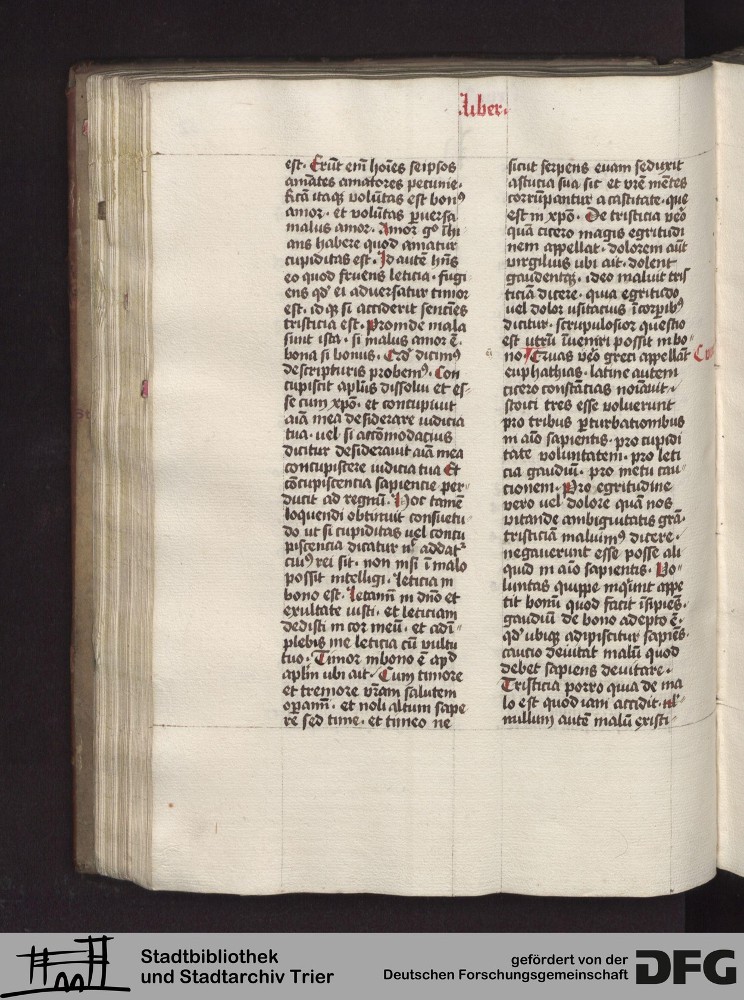 .Liber.
est. Erūt em̄ hoīes seipsos
amātes amatores pecunie.
ficā itaqꝫ volūtas est bonꝰ
amor. et volūtas ꝑversa
malus amor. Amor gͦ chi
ans habere quod amatur
cupiditas est. Id autē hn̄s
eo quod fruens leticia. fugi
ens qd' ei adversatur timor
est. idqꝫ si acciderit sencies
tristicia est. Proinde mala
sunt ista. si malus amor ē.
bona si bonus. Qd' dicimꝰ
de scripturis probemꝰ. Con
cupiscit aplūs dissolvi et es〃
se cum xpō. et concupiuit
aīā mea desiderare iudicia
tua. vel si accōmodacius
dicitur desiderauit aīā mea
concupiscere iudicia tua Et
cōcupiscencia sapiencie per〃
ducit ad regnū. Hoc tamē
loquendi obtinuit consuetu〃
do ut si cupiditas vel concu
piscencia dicatur nͨ addatᷣ
cuiꝰ rei sit. non nisi ī malo
possit intelligi. Leticia in
bono est. Letamī in dn̄o et
exultate iusti. et leticiam
dedisti in cor meū. et adī〃
plebis me leticia cū vultu
tuo. Timor in bono ē apd̄
aplm̄ ubi ait. Cum timore
et tremore vr̄am salutem
oꝑamī. et noli altum sape
re sed time. et timeo ne
sicut serpens evam seduxit
astucia sua sic et vrē mētes
corrūpantur a castitate. que
est in xpō. De tristicia vēo
quā cicero magis egritudi
nem appellat. dolorem aūt
virgilius ubi ait. dolent
gaudentqꝫ. ideo malui tris
ticiā dicere. quia egritudo
vel dolor usitacius ī corpibꝰ
dicitur. scrupulosior questio
est utrū īveniri possit in bo〃
no. Quas vēo greci appellāt
euphathias. latine autem
cicero constācias noīavit.
stoici tres esse voluerunt
pro tribus ꝑturbationibus
in aīo sapientis. pro cupidi
tate voluntatem. pro leti
cia gaudiū. pro metu cau〃
cionem. Pro egritudine
vero vel dolore quā nos
vitande ambiguitatis grā.
tristiciam maluimꝰ dicere.
negaverunt esse posse ali
quid in aīo sapientis. Vo〃
luntas quippe inquiunt appe
tit bonū quod facit īsipiēs.
gaudiū de bono adepto ē.
qd' ubiqꝫ adipiscitur sapiēs.
caucio devitat malū quod
debet sapiens devitare.
Tristicia porro quia de ma
lo est quod iam accidit. nl'
nullum autē malū existi〃
Stadtbibliothek
und Stadtarchiv Trier
gefördert von der
Deutschen Forschungsgemeinschaft
DFG